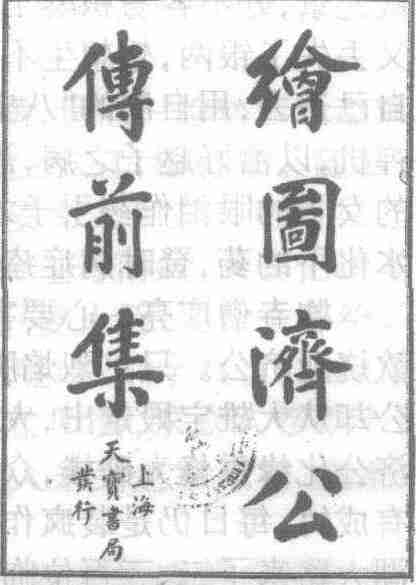 繪圖濟公
傳前集
上海
天寶書局
發行